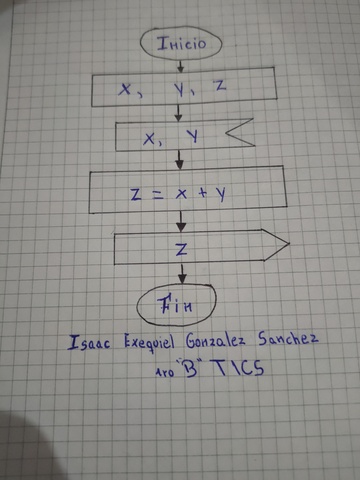 Inicio
x, y, z
x, y
z = x + y
z
Fin
Isaac Exequiel Gonzalez Sanchez
1ro "B" TICS